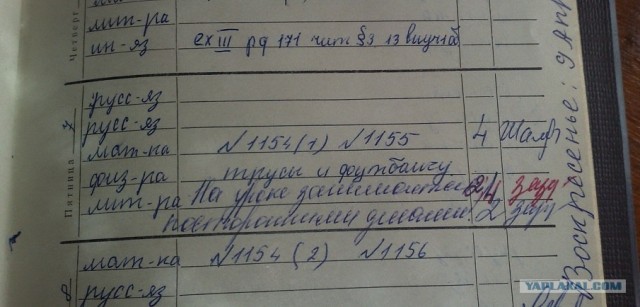 Четверг
лит-ра
ин-яз ex III pg 171 чит §3 13 выучить
Пятница 7
русс-яз
русс-яз
мат-ка N1154(1) N1155 4
физ-ра трусы и футболку
лит-ра На уроке занимается 2/4
посторонними делами! 2
8
мат-ка N1154(2) N1156
русс-яз
Воскресенье: 9 Апр
YAPLAKAL.COM